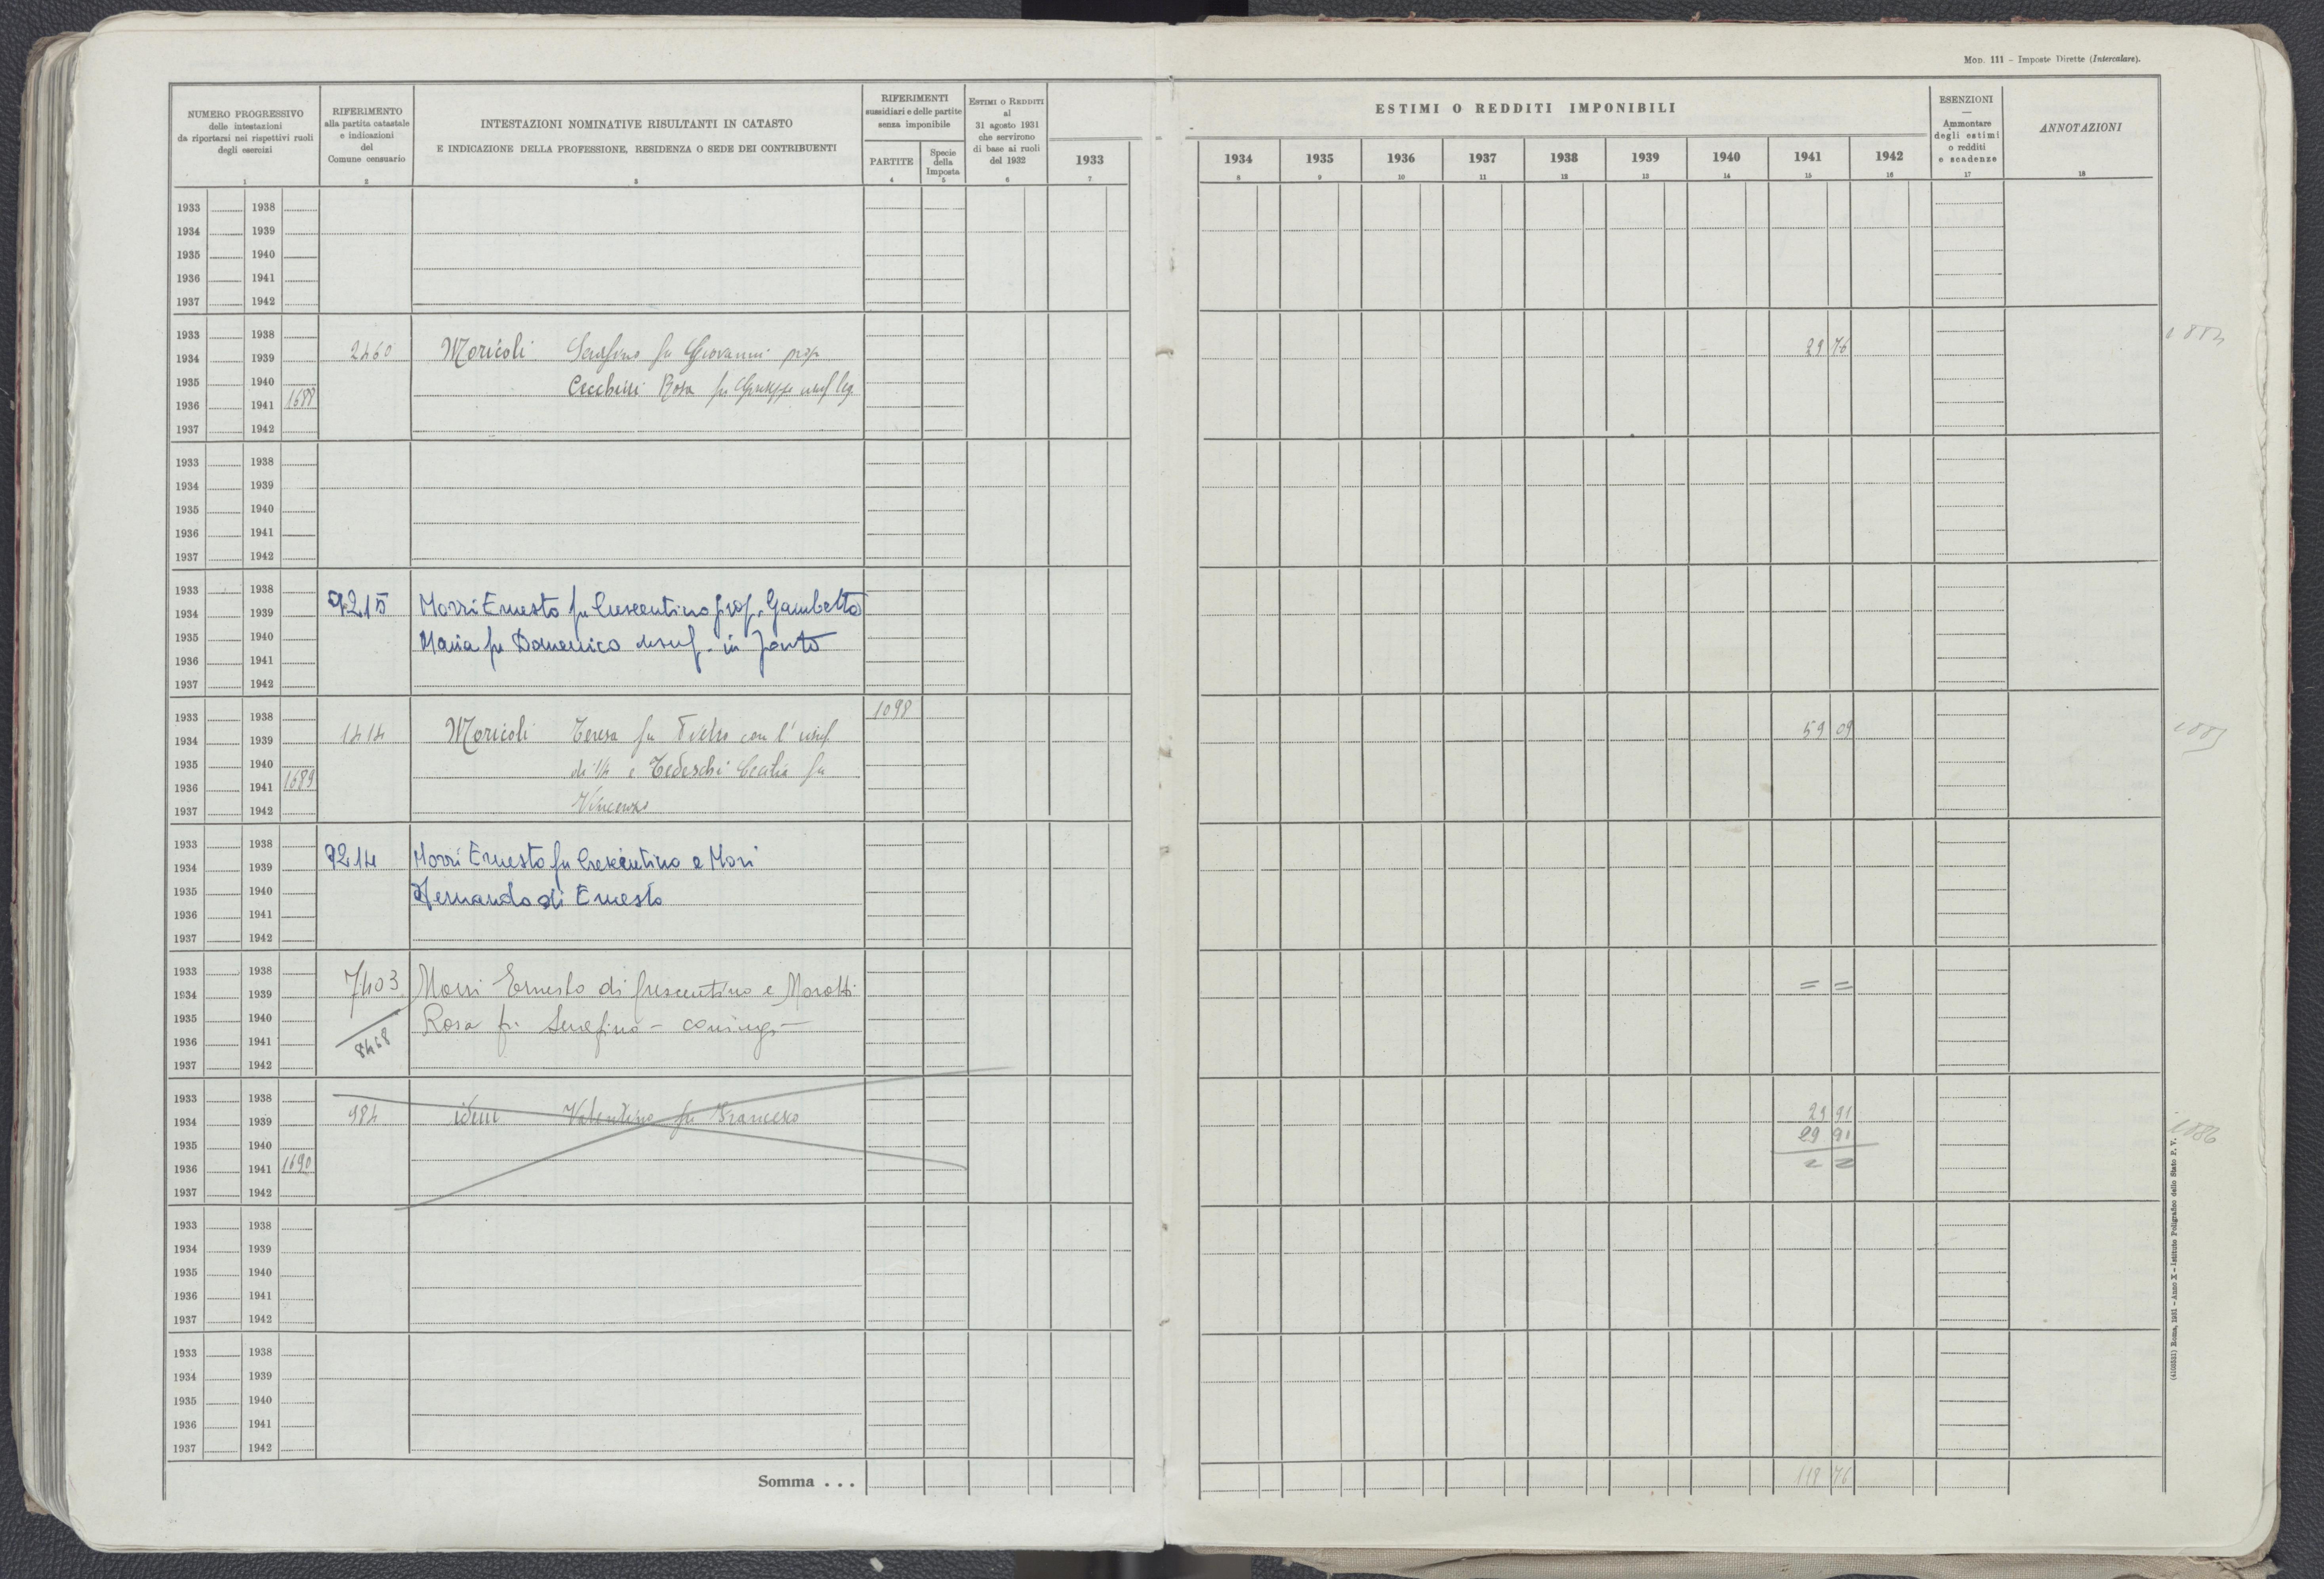 Mod. 111 - Imposte Dirette (Intercalare).
NUMERO PROGRESSIVO
delle intestazioni
da riportarsi nei rispettivi ruoli
degli esercizi
1
RIFERIMENTO
alla partita catastale
e indicazioni
del
Comune censuario
2
INTESTAZIONI NOMINATIVE RISULTANTI IN CATASTO
E INDICAZIONE DELLA PROFESSIONE, RESIDENZA O SEDE DEI CONTRIBUENTI
3
RIFERIMENTI
sussidiari e delle partite
senza imponibile
PARTITE
4
Specie
della
Imposta
5
ESTIMI O REDDITI
al
31 agosto 1931
che servirono
di base ai ruoli
del 1932
6
1933
7
ESTIMI O REDDITI IMPONIBILI
1934 1935 1936 1937 1938 1939 1940 1941 1942
8 9 10 11 12 13 14 15 16
ESENZIONI
—
Ammontare
degli estimi
o redditi
e scadenze
17
ANNOTAZIONI
18
1933 1938
1934 1939
1935 1940
1936 1941
1937 1942
1933 1938
1934 1939 2460 Moricoli Serafino fu Giovanni prop 29 76
1935 1940 Cecchini Rosa fu Giuseppe usuf leg.
1936 1941 1688
1937 1942
1933 1938
1934 1939
1935 1940
1936 1941
1937 1942
1933 1938
1934 1939 9215 Morri Ernesto fu Crescentino prop. Gambetta
1935 1940 Maria fu Domenico usuf. in parte
1936 1941
1937 1942
1933 1938 1098
1934 1939 1414 Moricoli Teresa fu Pietro con l'usuf 59 09 1085
1935 1940 di 1/4 e Tedeschi Cecilia fu
1936 1941 1689
1937 1942 Vincenzo
1933 1938
1934 1939 9214 Morri Ernesto fu Crescentino e Morri
1935 1940 Fernando di Ernesto
1936 1941
1937 1942
1933 1938
1934 1939 7403 Morri Ernesto di Crescentino e Morotti = =
1935 1940 Rosa fu Serafino - coniugi -
1936 1941 8468
1937 1942
1933 1938
1934 1939 984 idem Valentino fu Francesco 29 91
1935 1940 29 91 1086
1936 1941 1690 = =
1937 1942
1933 1938
1934 1939
1935 1940
1936 1941
1937 1942
1933 1938
1934 1939
1935 1940
1936 1941
1937 1942
Somma . . . 118 76
(4103331) Roma, 1931 - Anno X - Istituto Poligrafico dello Stato P. V.